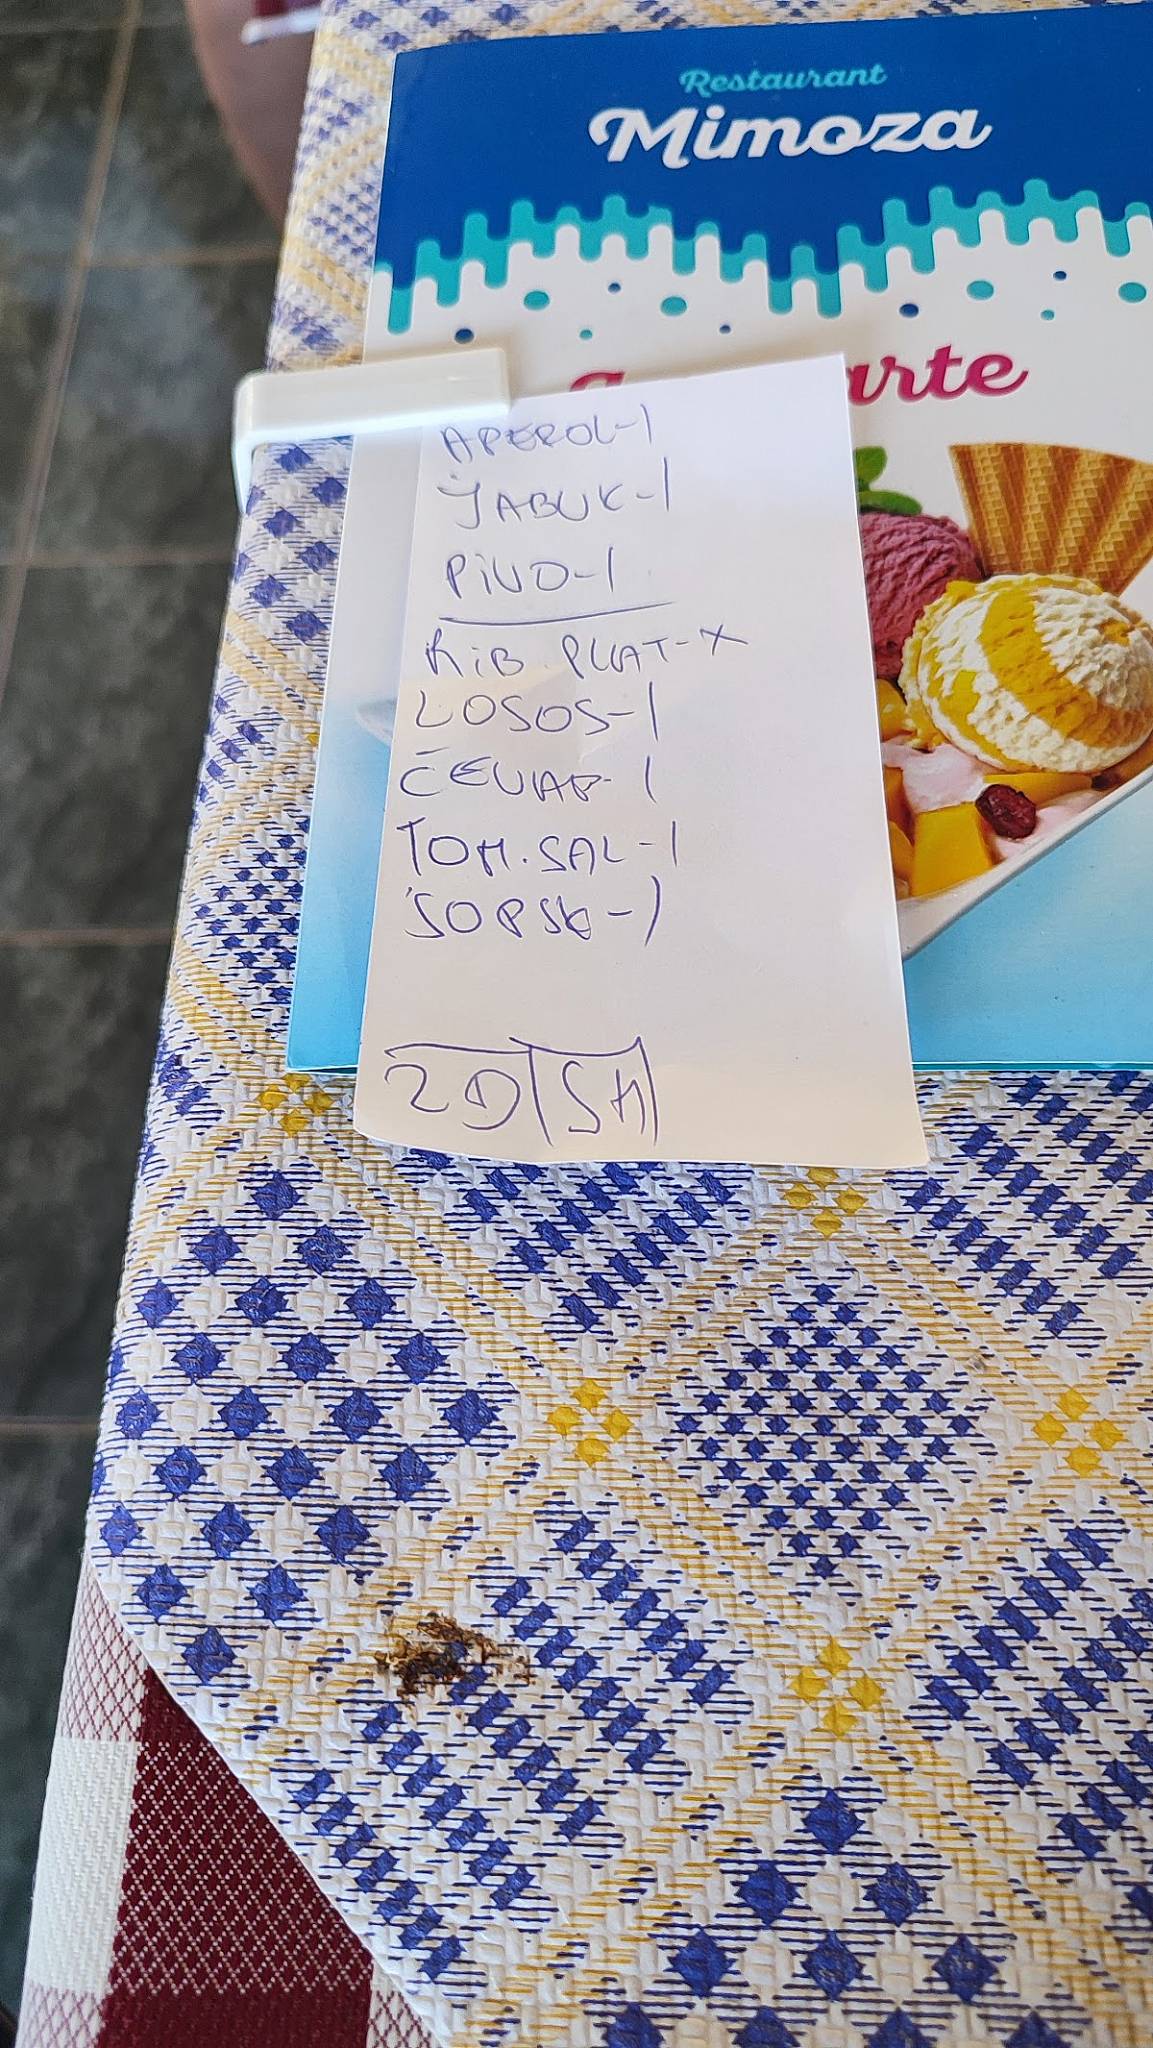 Restaurant
Mimoza
arte
APEROL-1
JABUK-1
PIVO-1
RIB PLAT-X
LOSOS-1
ČEVAP-1
TOM.SAL-1
ŠOPSK-1
20 SM